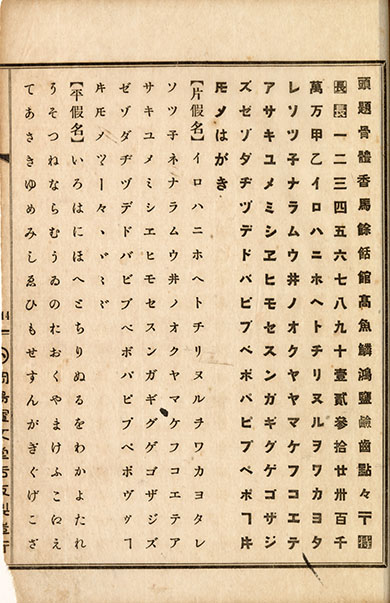 頭題骨體香馬餘餂館髙魚鱗鴻鹽鹼齒點々〒特
長長一二三四五六七八九十壹貳參拾廿卅百千
萬万甲乙イロハニホヘトチリヌルヲワカヨタ
レソツ子ナラムウ井ノオクヤヤマケフコエテ
アサキユメミシヱヒモセスンガギグゲゴザジ
ズゼゾダヂヅデドバビブベボパピプペポヿ
はがき
【片假名】イロハニホヘトチリヌルチワカヨタレ
ソツ子ネナラムウ井ノオクヤマケフコエテア
サキユメミシヱヒモセスンガギグゲゴザジズ
ゼゾダヂヅデドバビブベボパピプペポヴヿ
々ヽ
【平假名】いろはにほへとちりぬるをわかよたれ
うそつねならむうゐのにおくやまけふこえ
てあさきゆめみしゑひもせすんがぎぐげこざ